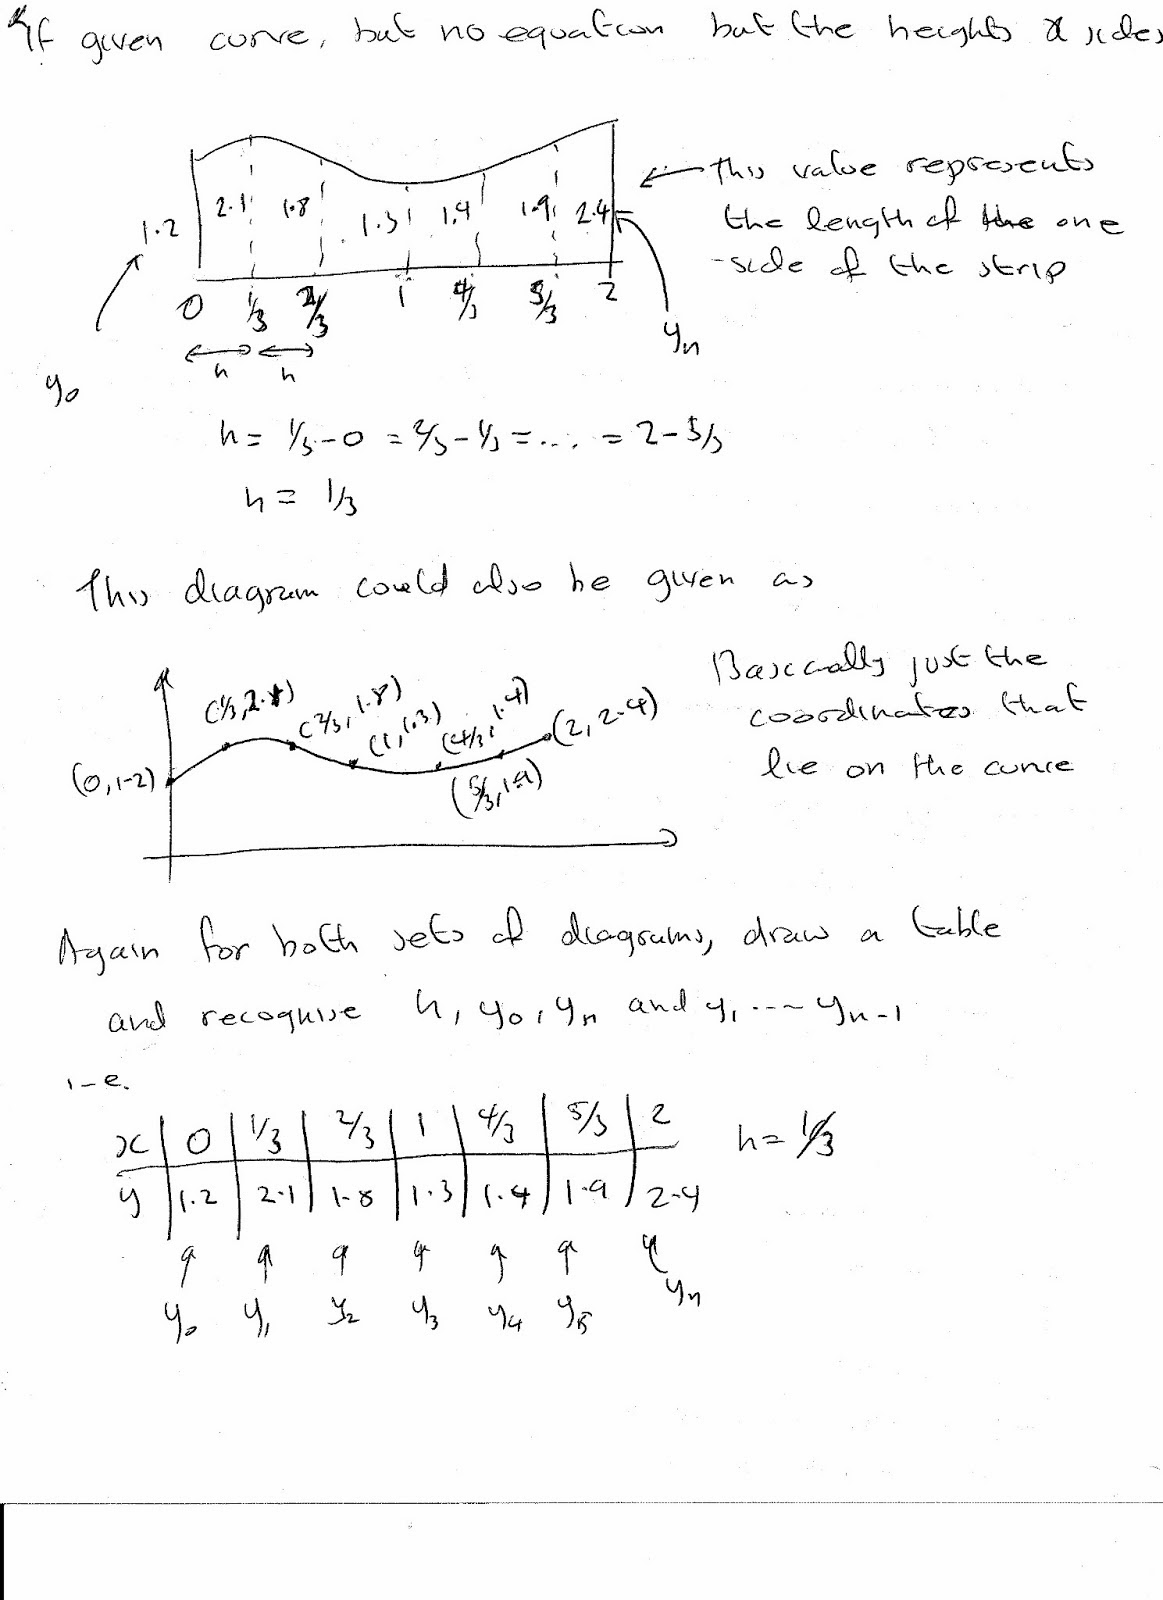 If given curve, but no equation but the heights & sides
1.2 2.1 1.8 1.3 1.4 1.9 2.4
← This value represents
the length of the one
side of the strip
0 1/3 2/3 1 4/3 5/3 2
h h
y₀ yₙ
h = 1/3 - 0 = 2/3 - 1/3 = .... = 2 - 5/3
h = 1/3
This diagram could also be given as
(0, 1.2) (2/3, 1.8) (1, 1.3) (4/3, 1.4) (5/3, 1.9) (2, 2.4)
Basically just the
coordinates that
lie on the curve
Again for both sets of diagrams, draw a table
and recognise h, y₀, yₙ and y₁ .... yₙ₋₁
i.e.
x 0 1/3 2/3 1 4/3 5/3 2 h = 1/3
y 1.2 2.1 1.8 1.3 1.4 1.9 2.4
y₀ y₁ y₂ y₃ y₄ y₅ yₙ